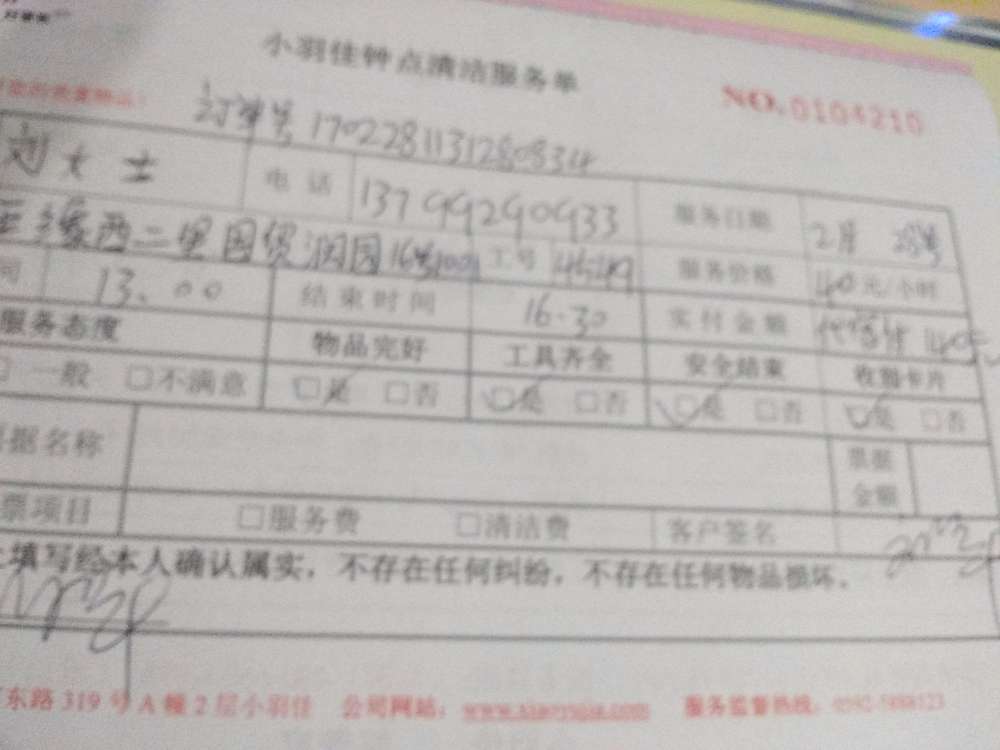 小羽佳钟点清洁服务单
NO.0104210
订单号 17022811312808334
刘女士 电话 13799290933 服务日期 2月 28号
西二里国贸润园16号1001 工号 4549 服务价格 40元/小时
间 13.00 结束时间 16.30 实付金额
服务态度 物品完好 工具齐全 安全结束 收到卡片
□一般 □不满意 □是 □否 □是 □否 □是 □否 □是 □否
票据名称 票据金额
票项目 □服务费 □清洁费 客户签名
上填写经本人确认属实，不存在任何纠纷，不存在任何物品损坏。
东路319号A幢2层小羽佳 公司网站： 服务监督热线：